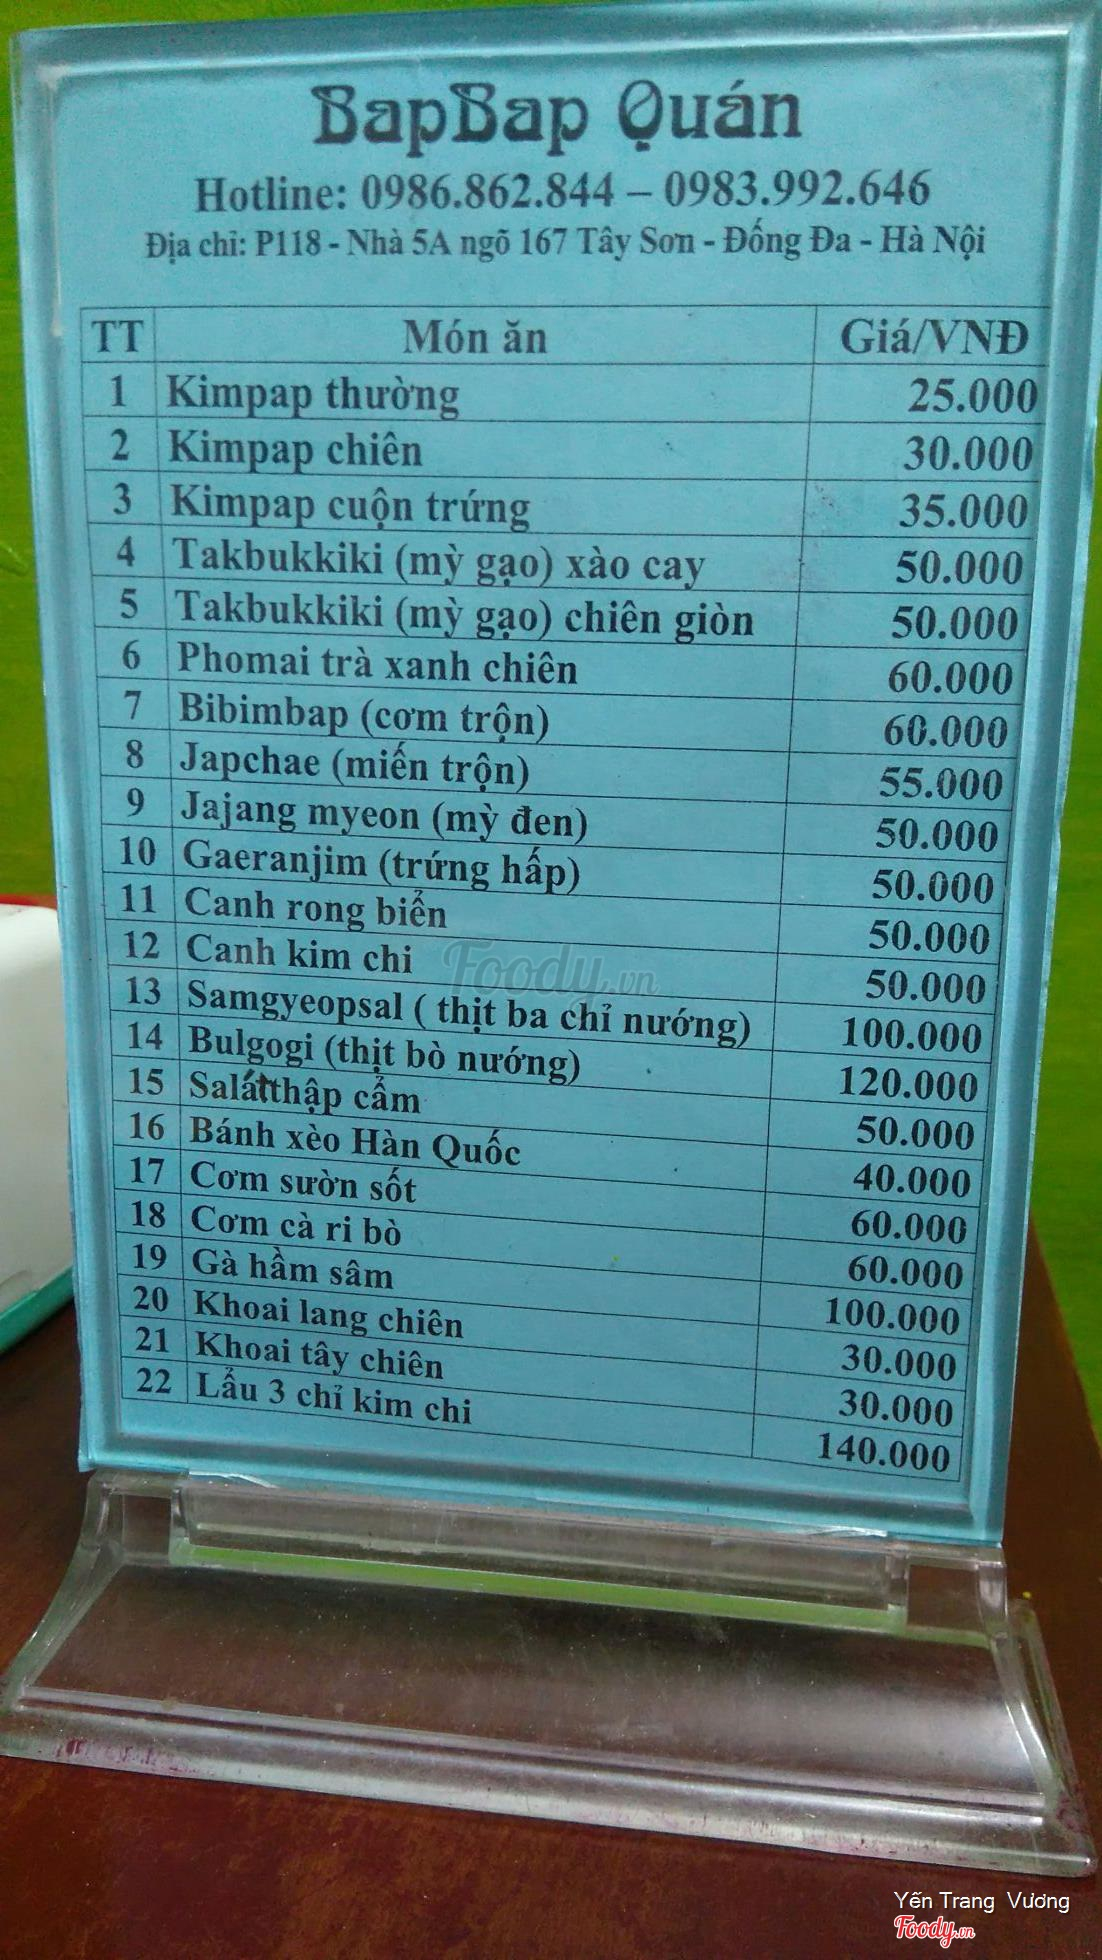 BapBap Quán
Hotline: 0986.862.844 – 0983.992.646
Địa chỉ: P118 - Nhà 5A ngõ 167 Tây Sơn - Đống Đa - Hà Nội
TT Món ăn Giá/VNĐ
1 Kimpap thường 25.000
2 Kimpap chiên 30.000
3 Kimpap cuộn trứng 35.000
4 Takbukkiki (mỳ gạo) xào cay 50.000
5 Takbukkiki (mỳ gạo) chiên giòn 50.000
6 Phomai trà xanh chiên 60.000
7 Bibimbap (cơm trộn) 60.000
8 Japchae (miến trộn) 55.000
9 Jajang myeon (mỳ đen) 50.000
10 Gaeranjim (trứng hấp) 50.000
11 Canh rong biển 50.000
12 Canh kim chi 50.000
13 Samgyeopsal ( thịt ba chỉ nướng) 100.000
14 Bulgogi (thịt bò nướng) 120.000
15 Salát thập cẩm 50.000
16 Bánh xèo Hàn Quốc 40.000
17 Cơm sườn sốt 60.000
18 Cơm cà ri bò 60.000
19 Gà hầm sâm 100.000
20 Khoai lang chiên 30.000
21 Khoai tây chiên 30.000
22 Lẩu 3 chỉ kim chi 140.000
Foody.vn
Yến Trang Vương
Foody.vn